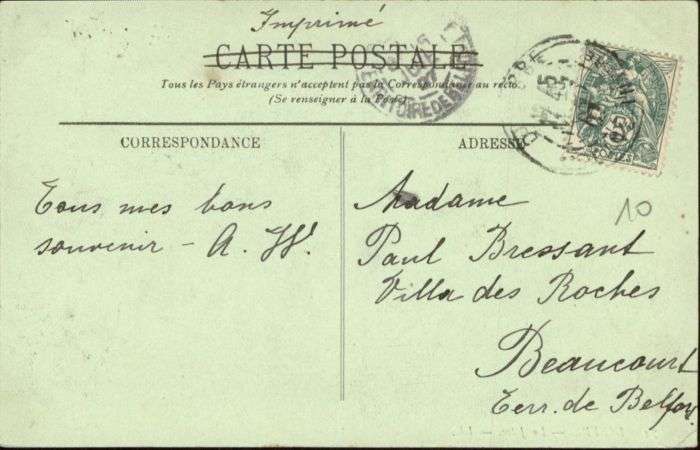 Imprimé
CARTE POSTALE
Tous les Pays étrangers n'acceptent pas la Correspondance au recto
(Se renseigner à la Poste)
CORRESPONDANCE
ADRESSE
Tous mes bons
souvenir - A. W.
Madame
Paul Bressant
Villa des Roches
Beaucourt
Terr. de Belfort
10